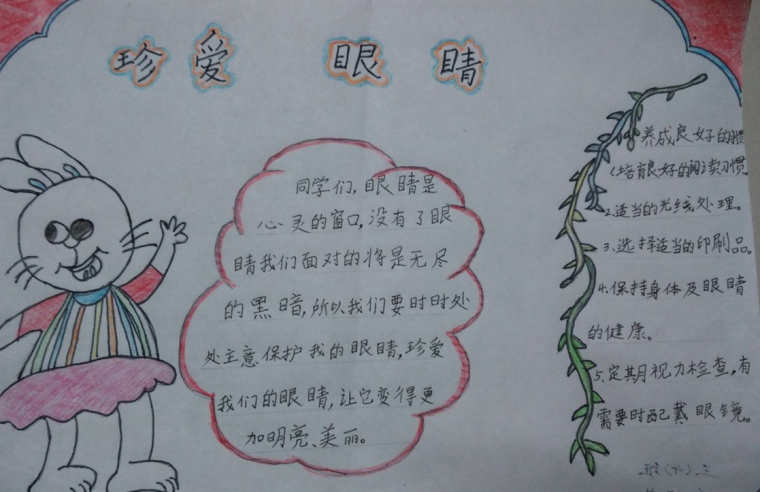 珍爱 眼睛
同学们,眼睛是
心灵的窗口,没有了眼
睛我们面对的将是无尽
的黑暗,所以我们要时时处
处主意保护我的眼睛,珍爱
我们的眼睛,让它变得更
加明亮、美丽。
养成良好的惯
1.培良好的阅读习惯
2.适当的光线处理。
3.选择适当的印刷品。
4.保持身体及眼睛
的健康。
5.定期视力检查,有
需要时配戴眼镜。